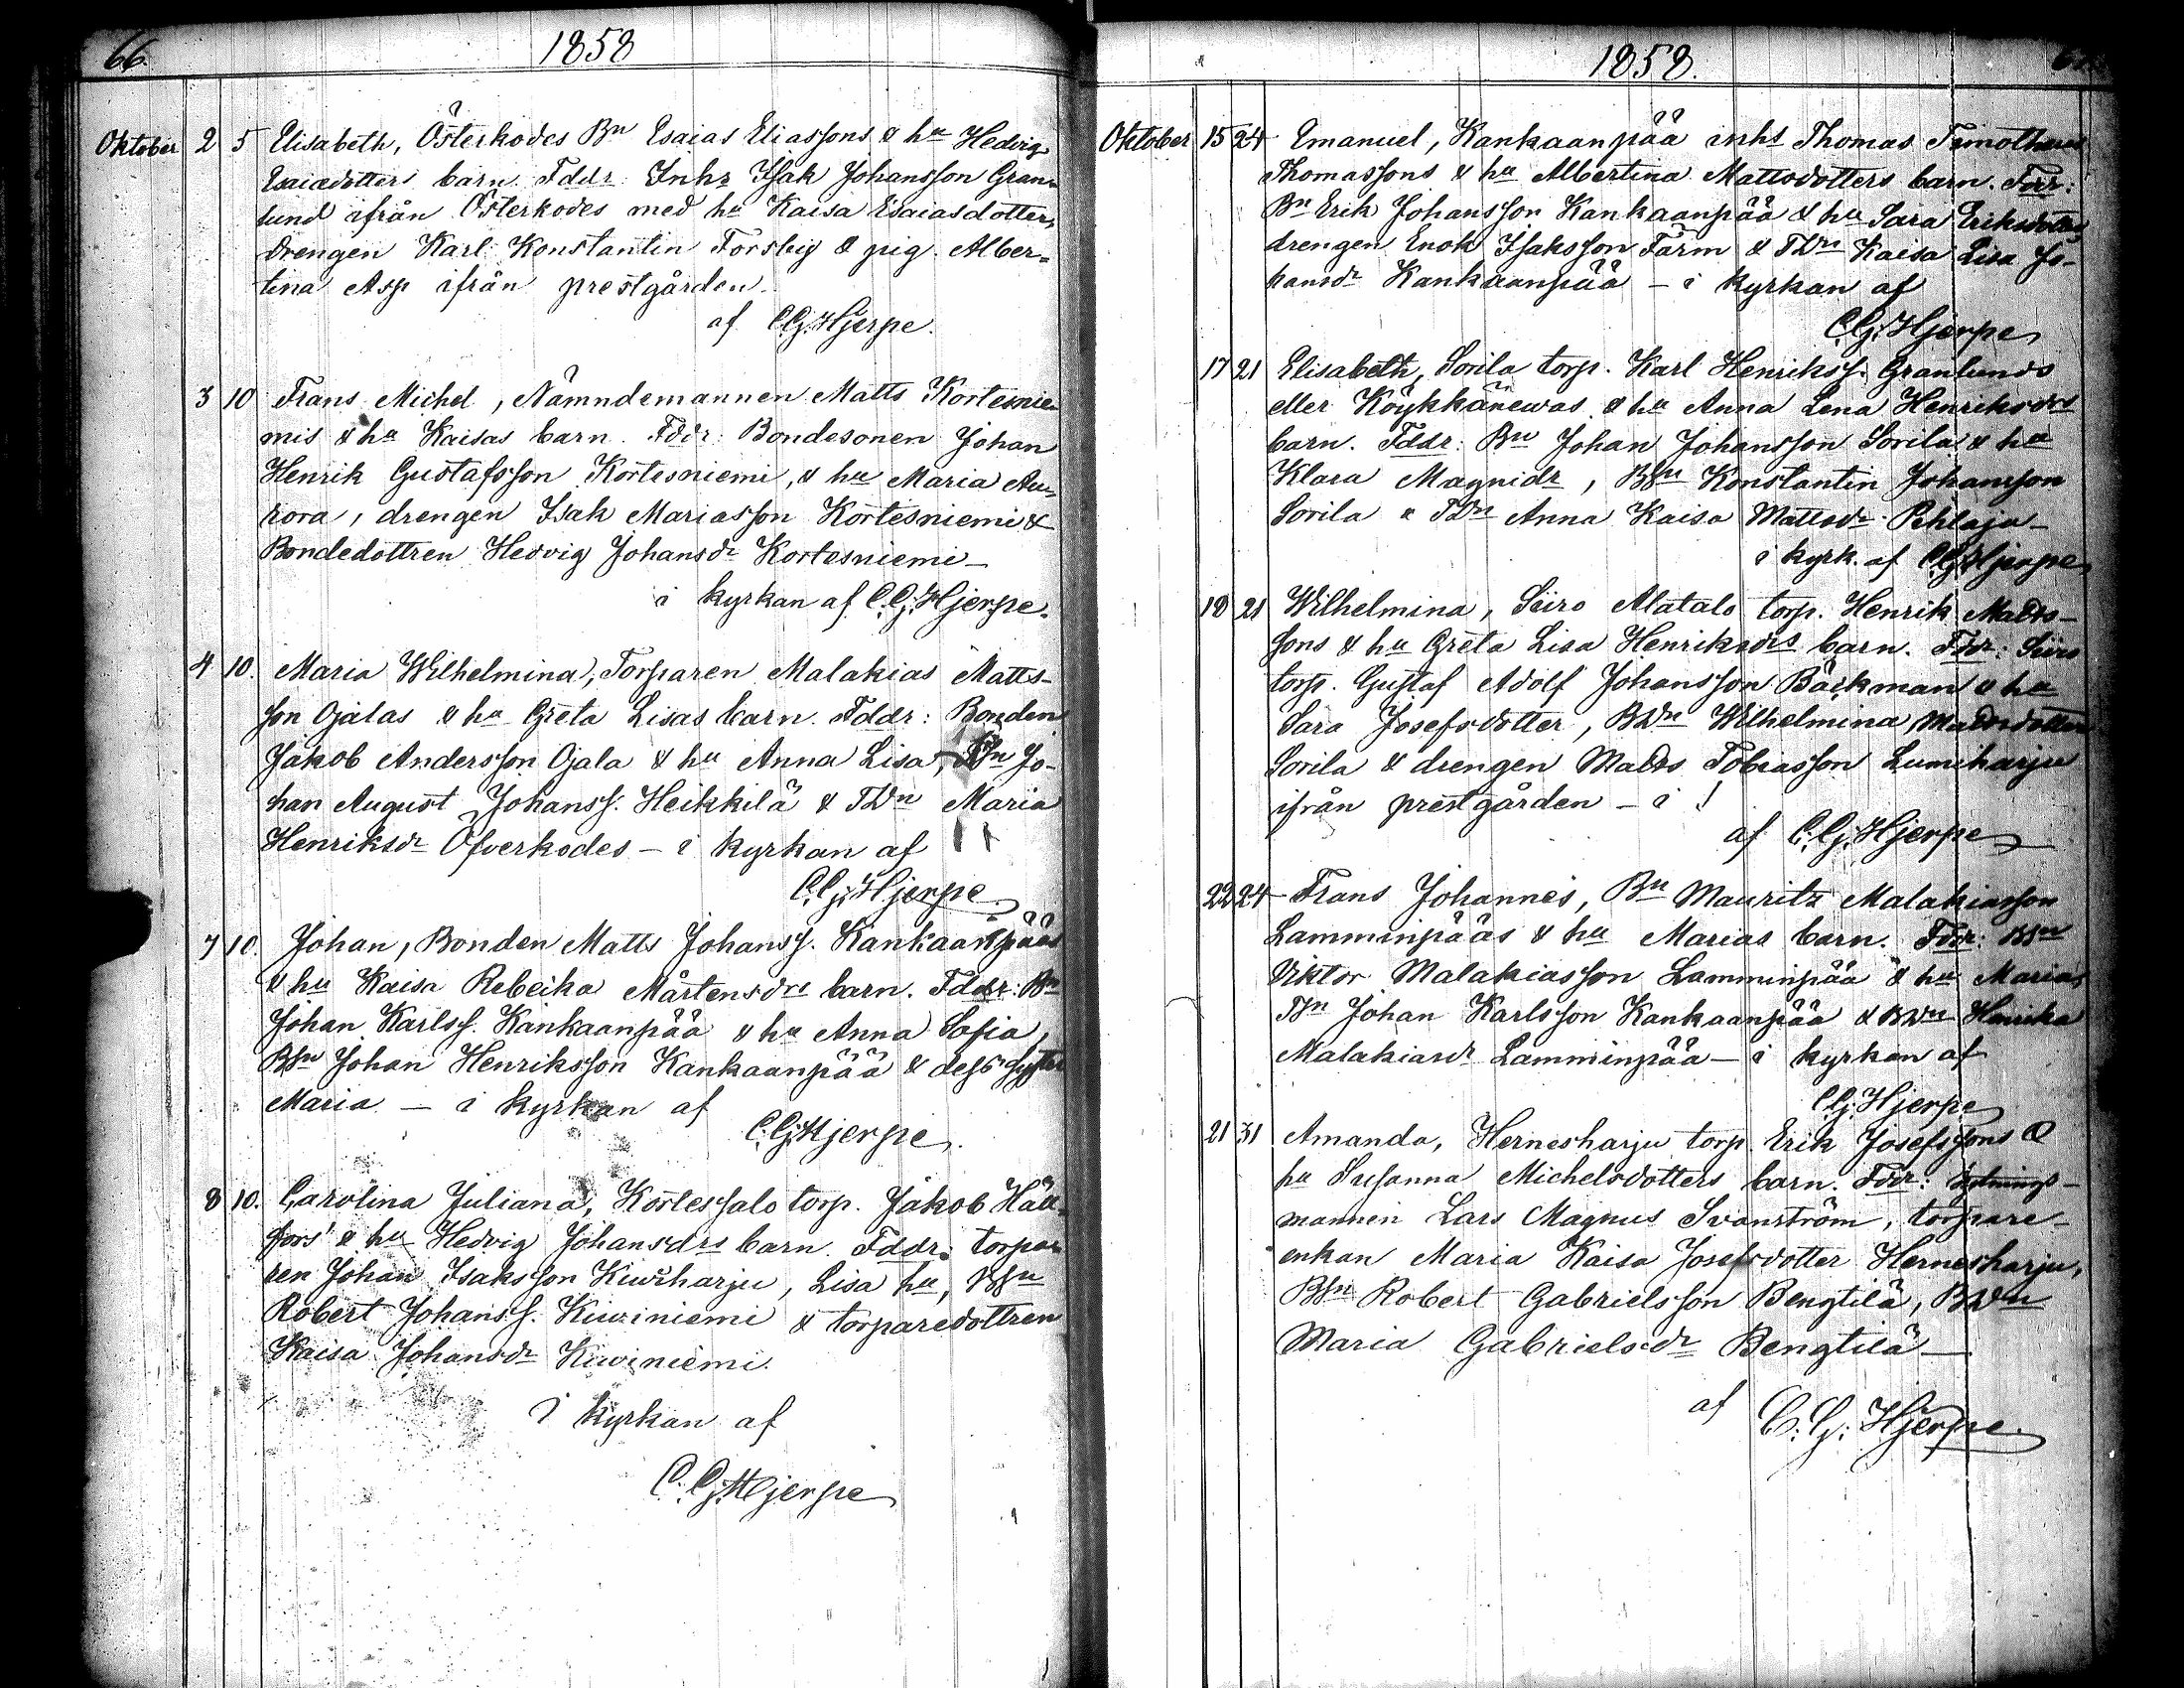 66. 1858
Oktober 2 5 Elisabeth, Österkodes Bn Esaias Eliassons & hu Hedvig
Esaiædotters barn. Fddr: Inhs Isak Johansson Gran-
lund ifrån Österkodes med hu Kaisa Esaiasdotter,
drengen Karl Konstantin Forsby & pig. Alber-
tina Asp ifrån prestgården.
af C.G. Hjerpe.
3 10 Frans Michel, Nämndemannen Matts Kortesnie-
mis & hu Kaisas barn. Fddr: Bondesonen Johan
Henrik Gustafsson Kortesniemi, & hu Maria Au-
rora, drengen Isak Mariasson Kortesniemi &
Bondedottren Hedvig Johansdr Kortesniemi —
i kyrkan af C.G. Hjerpe.
4 10. Maria Wilhelmina, Torparen Malakias Matts-
son Ojalas & hu Greta Lisas barn. Fddr: Bonden
Jakob Andersson Ojala & hu Anna Lisa, Jo-
han August Johanss. Heikkilä & TDn Maria
Henriksdr Öfverkodes — i kyrkan af
C.G. Hjerpe
7 10. Johan, Bonden Matts Johanss. Kankaanpääs
& hu Kaisa Rebeika Mårtensdrs barn. Fddr: Bn
Johan Karlss. Kankaanpää & hu Anna Sofia,
BSn Johan Henriksson Kankaanpää & dess syster
Maria — i kyrkan af
C.G. Hjerpe.
8 10. Carolina Juliana, Kortessalo torp. Jakob Häll-
fors' & hu Hedvig Johansdrs barn. Fddr: torpa-
ren Johan Isaksson Kiwiharju, Lisa hu, BSn
Robert Johanss. Kiwiniemi & torparedottren
Kaisa Johansdr Kiwiniemi.
i kyrkan af
C.G. Hjerpe
1858.
Oktober 15 24 Emanuel, Kankaanpää inhs Thomas Timotheus
Thomassons & hu Albertina Mattsdotters barn. Fddr:
Bn Erik Johansson Kankaanpää & hu Sara Eriksdotter,
drengen Enok Isaksson Färm & TDn Kaisa Lisa Jo-
hansdr Kankaanpää — i kyrkan af
C.G. Hjerpe
17 21 Elisabeth, Sorila torp. Karl Henrikss. Granlunds
eller Köykkänewas & hu Anna Lena Henriksdrs
barn. Fddr: Bn Johan Johansson Sorila & hu
Klara Magnidr, BSn Konstantin Johansson
Sorila & TDn Anna Kaisa Mattsdr Pehlaja —
i kyrk. af C.G. Hjerpe
18 21 Wilhelmina, Siiro Alatalo torp. Henrik Matts-
sons & hu Greta Lisa Henriksdrs barn. Fddr: Siiro
torp. Gustaf Adolf Johansson Bäckman & hu
Sara Josefsdotter, BDn Wilhelmina Mattsdotter
Sorila & drengen Matts Tobiasson Lumiharju
ifrån prestgården — i
af C.G. Hjerpe
22 24 Frans Johannes, Bn Mauritz Malakiasson
Lamminpääs & hu Marias barn. Fddr: BSn
Viktor Malakiasson Lamminpää & hu Maria,
TSn Johan Karlsson Kankaanpää & BDn Henrika
Malakiasdr Lamminpää — i kyrkan af
C.G. Hjerpe
21 31 Amanda, Hernesharju torp. Erik Josefssons &
hu Susanna Michelsdotters barn. Fddr:
mannen Lars Magnus Svanström, torpare-
enkan Maria Kaisa Josefsdotter Hernesharju,
BSn Robert Gabrielsson Bengtilä, BDn
Maria Gabrielsdr Bengtilä —
af C.G. Hjerpe.